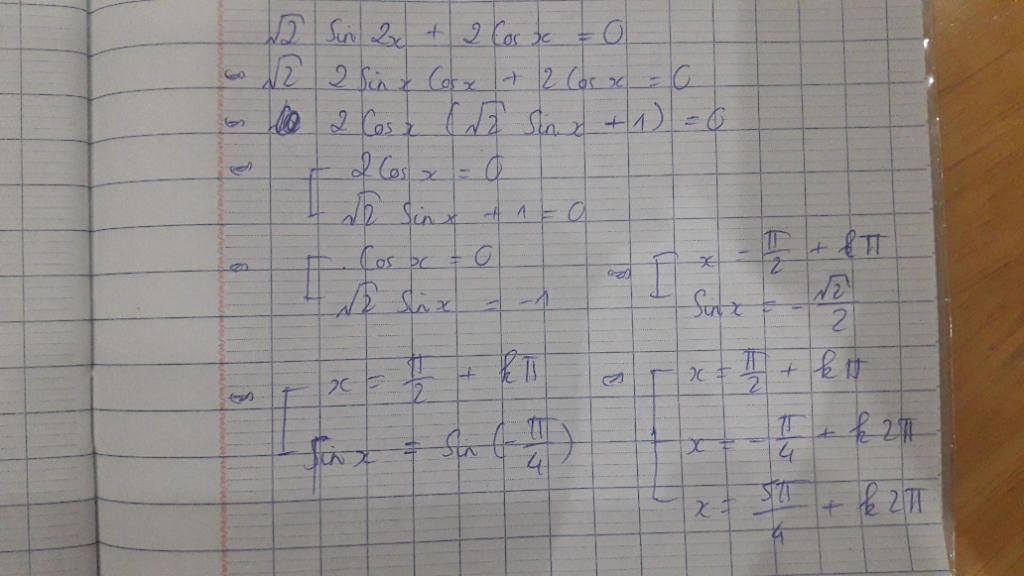 √2 Sin 2x + 2 Cos x = 0
⇔ √2 2 Sin x Cos x + 2 Cos x = 0
⇔ 2 Cos x (√2 Sin x + 1) = 0
⇔ [ 2 Cos x = 0
√2 Sin x + 1 = 0
⇔ [ Cos x = 0
√2 Sin x = -1
⇔ [ x = π/2 + kπ
Sin x = -√2/2
⇔ [ x = π/2 + kπ
Sin x = Sin (-π/4)
⇔ [ x = π/2 + kπ
x = -π/4 + k2π
x = 5π/4 + k2π